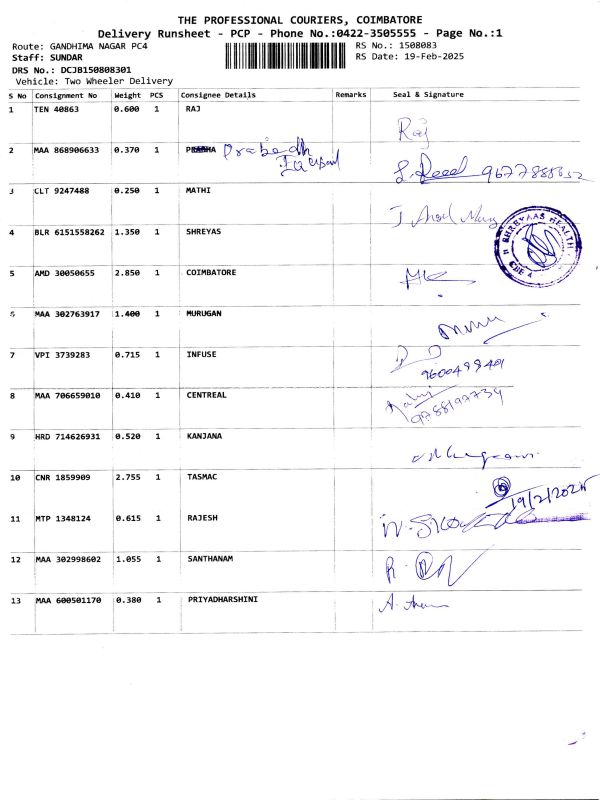 THE PROFESSIONAL COURIERS, COIMBATORE
Delivery Runsheet - PCP - Phone No.:0422-3505555 - Page No.:1
Route: GANDHIMA NAGAR PC4
RS No.: 1508083
Staff: SUNDAR
RS Date: 19-Feb-2025
DRS No.: DCJB150808301
Vehicle: Two Wheeler Delivery
S No Consignment No Weight PCS Consignee Details Remarks Seal & Signature
1 TEN 40863 0.600 1 RAJ Raj
2 MAA 868906633 0.370 1 Prabedh
3 CLT 9247488 0.250 1 MATHI J
4 BLR 6151558262 1.350 1 SHREYAS SHREYAAS HEALTH
5 AMD 30050655 2.850 1 COIMBATORE
6 MAA 302763917 1.400 1 MURUGAN
7 VPI 3739283 0.715 1 INFUSE
8 MAA 706659010 0.410 1 CENTREAL
9 HRD 714626931 0.520 1 KANJANA
10 CNR 1859909 2.755 1 TASMAC 19/2/2025
11 MTP 1348124 0.615 1 RAJESH
12 MAA 302998602 1.055 1 SANTHANAM R.
13 MAA 600501170 0.380 1 PRIYADHARSHINI